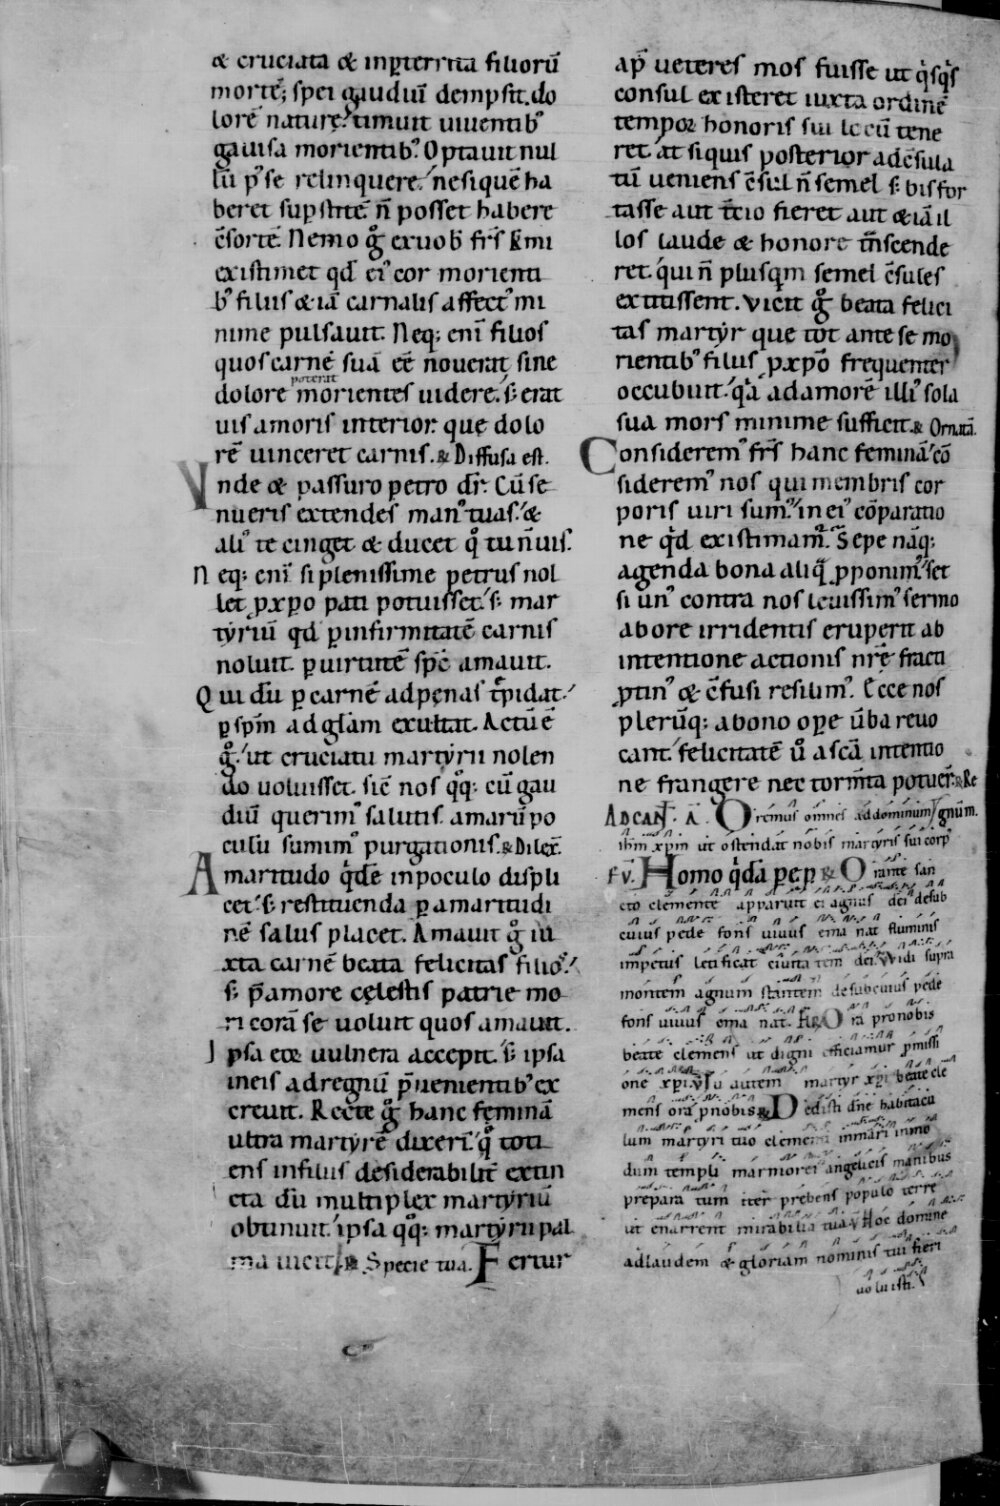 & cruciata & inp̄territa filiorū
morte᷒; spei gaudiū dempsit. do
lorē naturę; timuit uiuentib᷒
gauisa morientib᷒. Optauit nul
lū p᷒ se relinquere. ne si quē ha
beret sup̄stitē n̄ posset habere
c̄sortē. Nemo g̊ ex uob̄ fr̄s k̄mi
existimet qđ ei᷒ cor morienti
b᷒ filiis & iā carnalis affect᷒ mi
nime pulsauit. Neq; eni filios
quos carnē suā eē nouerat sine
dolore poterat morientes uidere. s; erat
uis amoris interior. que dolo
rē uinceret carnis. R Diffusa est.
Vnde & passuro petro dr̄. Cū se
nueris extendes man᷒ tuas. &
ali᷒ te cinget & ducet q̊ tu n̄ uis.
Neq; eni si plenissime petrus nol
let p xp̄o pati potuisset. s; mar
tyriū qđ p infirmitatē carnis
noluit. p uirtutē sp̄c amauit.
Qui dū p carnē ad penas t̄pidat.
p sp̄m ad gl̄am exultat. Actū ē
g̊. ut cruciatu martyrii nolen
do uoluisset. sic̄ nos q̊q; cū gau
diū querim᷒ salutis. amarū po
culū sumim᷒ purgationis. R Dilex̄.
Amaritudo q̄dē in poculo displi
cet. s; restituenda p amaritudi
nē salus placet. Amauit g̊ iu
xta carnē beata felicitas filio᷒s.
s; p̄ amore cęlestis patrie mo
ri corā se uoluit quos amauit.
Ipsa eor̄ uulnera accepit. s; ipsa
in eis ad regnū p̄uenientib᷒ ex
creuit. Recte g̊ hanc feminā
ultra martyrē dixeri. q̊ toti
ens in filiis desiderabilit̄ extin
cta dū multiplex martyriū
obtinuit. ipsa q̊q; martyrii pal
ma uicit. R Specie tua. Fertur
ap̄ ueteres mos fuisse ut q̄sq̄s
consul existeret iuxta ordinē
tempoꝝ honoris sui locū tene
ret. at siquis posterior ad c̄sula
tū ueniens c̄sul n̄ semel s; bis for
tasse aut t̄cio fieret aut & iā il
los laude & honore t̄nscende
ret. qui n̄ plusqm semel c̄sules
extitissent. Vicit g̊ beata felici
tas martyr que tot ante se mo
rientib᷒ filiis p xp̄o frequenter
occubuit. q̄a ad amorē illi᷒ sola
sua mors minime sufficit. R Ornatā.
Considerem᷒ fr̄s hanc feminā. cō
siderem᷒ nos qui membris cor
poris uiri sum᷒. in ei᷒ cōparatio
ne q̄d existimam᷒. Sepe nāq;
agenda bona aliq̄ pponim᷒. set
si un᷒ contra nos leuissim᷒ sermo
ab ore irridentis eruperit ab
intentione actionis nr̄ę fracti
ptin᷒ & c̄fusi resilim᷒. Ecce nos
plerūq; a bono ope ūba reuo
cant. felicitatē ů a sc̄a intentio
ne frangere nec torm̄ta potuer̄. R Re
AD CANT. A. Oremus omnes ad dominum gnūm.
ihm xp̄m ut ostendat nobis martyris sui corp᷒
Ev. Homo q̄dā p ep R Orante san
cto clemente apparuit ei agnus dei de sub
cuius pede fons uiuus ema nat fluminis
impetus letificat ciuita tem dei. Vidi supra
montem agnum stantem de sub cuius pede
fons uiuus ema nat. R Ora pro nobis
beate clemens ut digni efficiamur pmissi
one xp̄i. V Tu autem martyr xp̄i beate cle
mens ora p nobis. R Dedisti dn̄e habitacu
lum martyri tuo clementi in mari in mo
dum templi marmorei angelicis manibus
prepara tum iter prebens populo terre
ut enarrent mirabilia tua. V Hoc domine
ad laudem & gloriam nominis tui fieri
uoluisti.